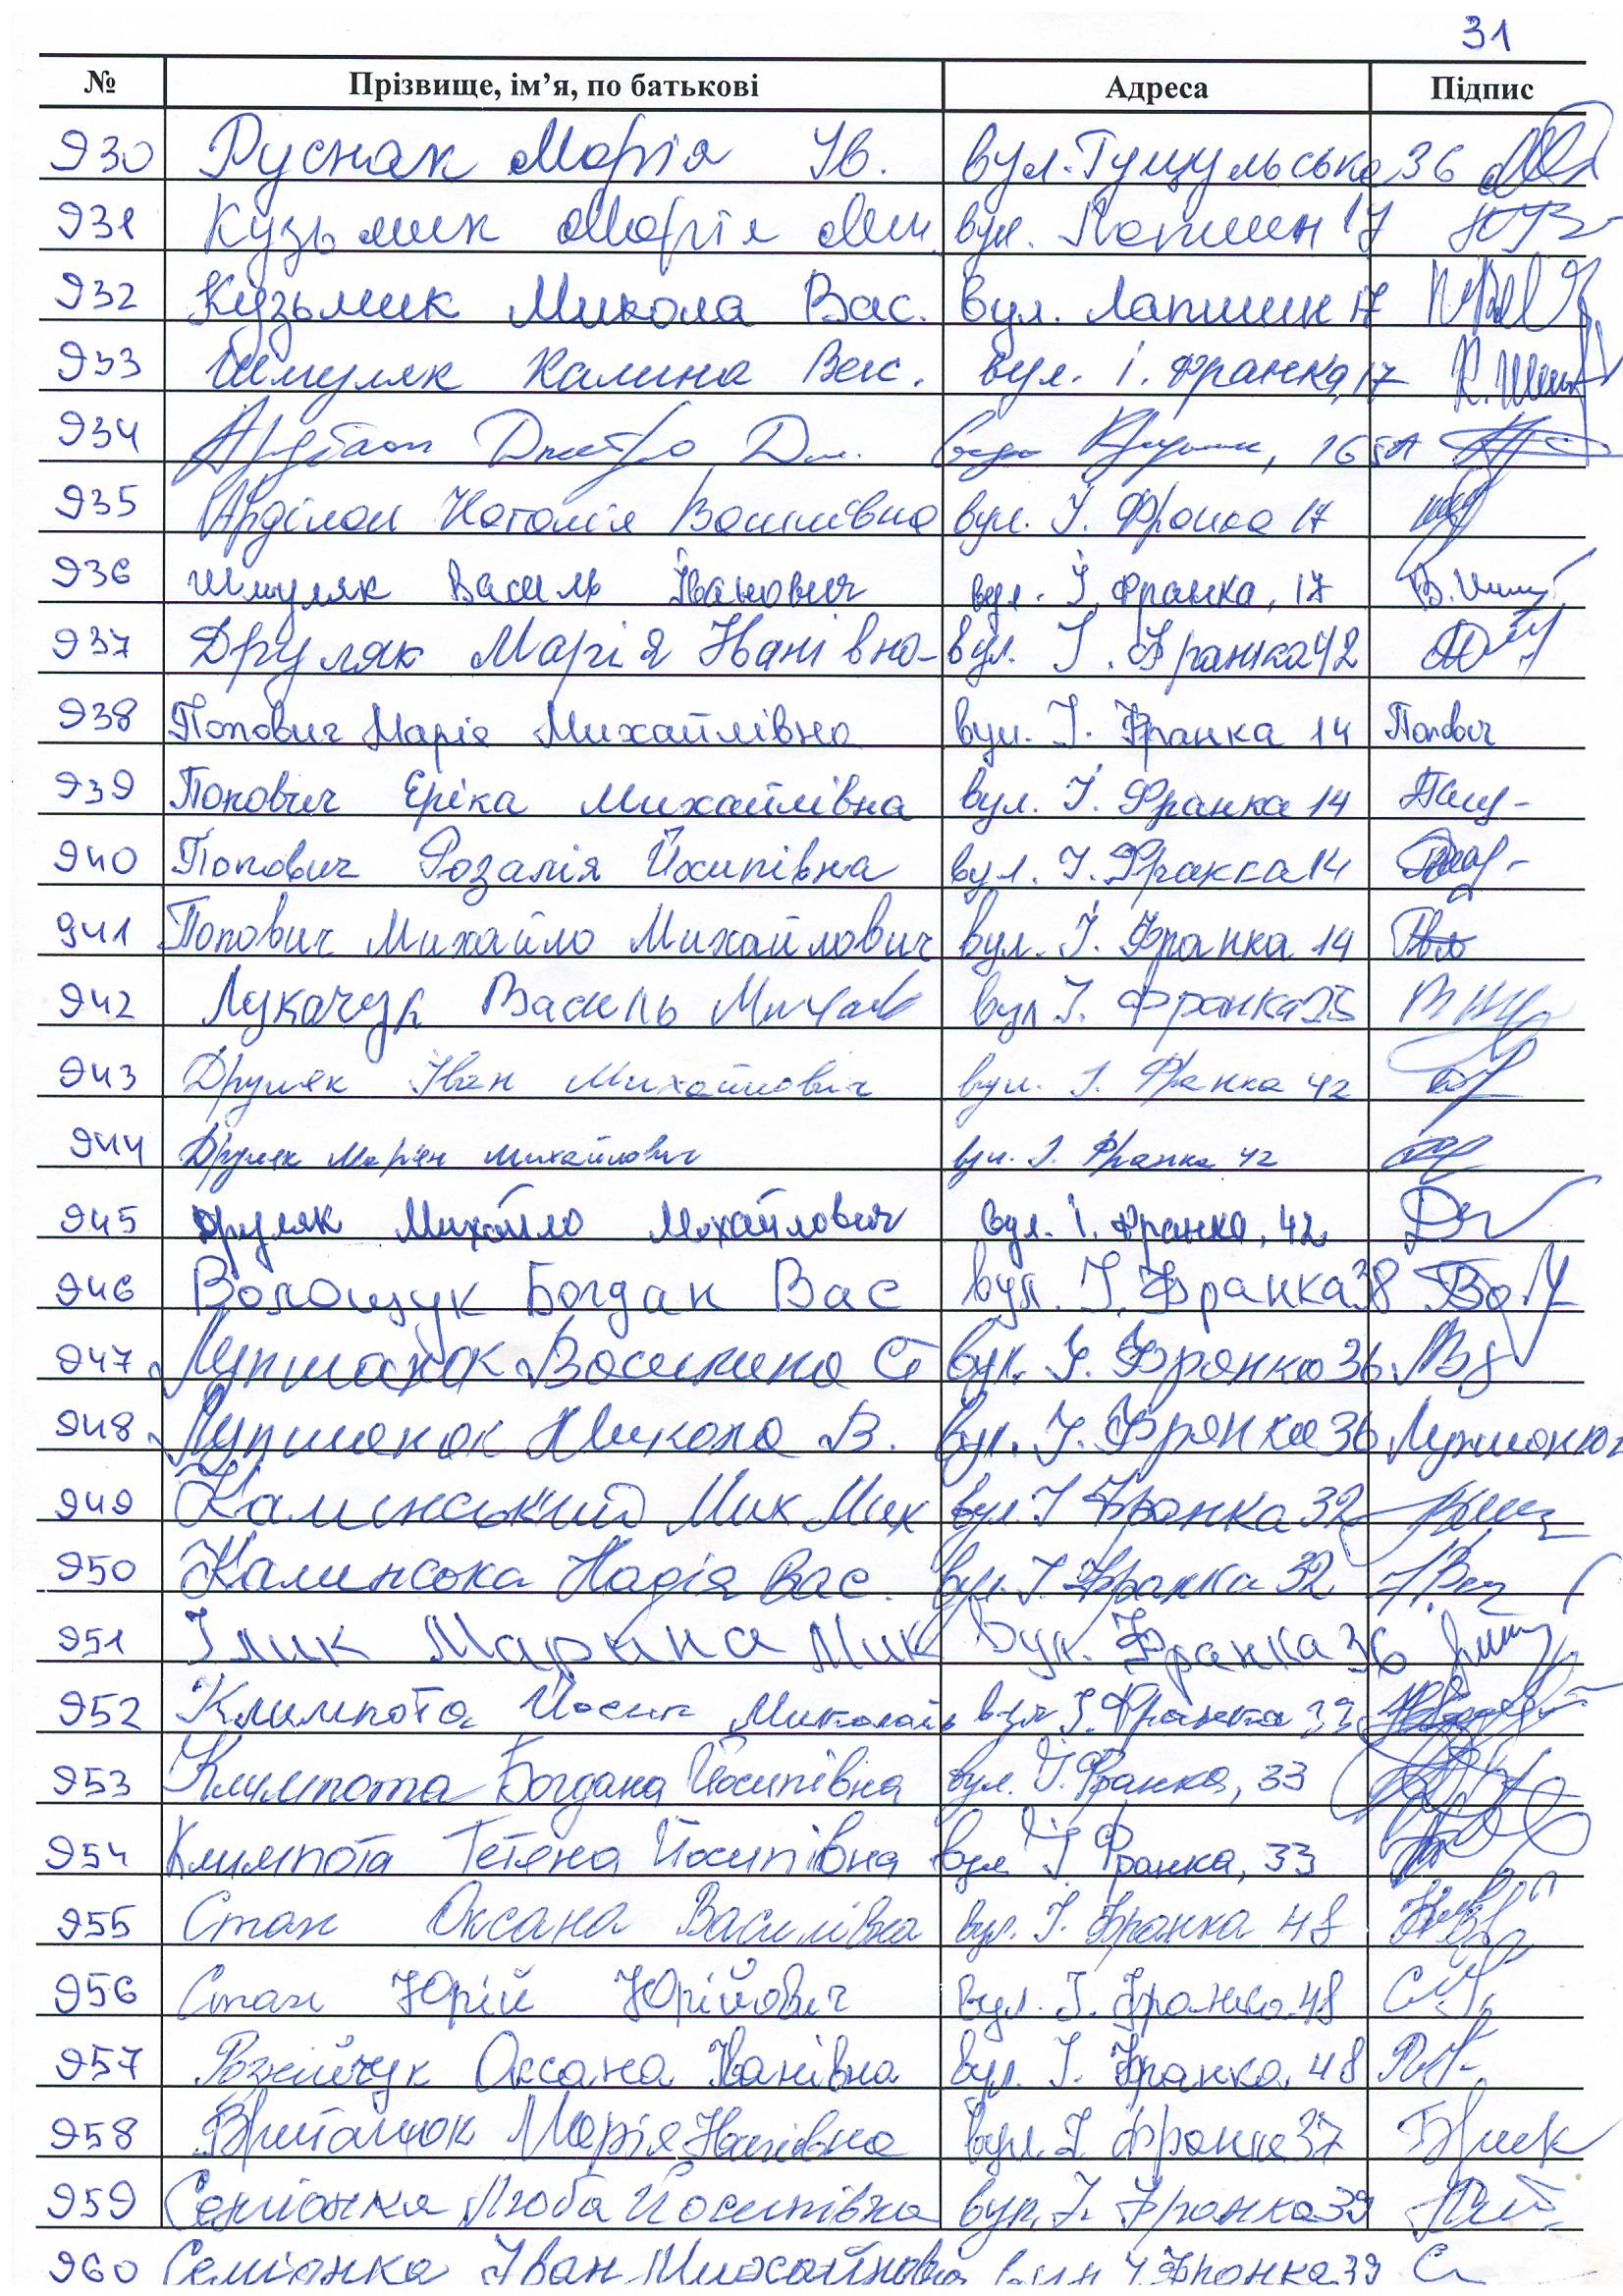 31
№ Прізвище, ім’я, по батькові Адреса Підпис
930 Руснак Марія Ів. вул. Гуцульська 36
931 Кузьмик Марія Мик. вул. Лапшин 17
932 Кузьмик Микола Вас. вул. Лапшин 17
933 Шмуляк Калина Вас. вул. І. Франка, 17
934 Дмитро Дм. 165А
935 Арділан Наталія Василівна вул. І. Франка 17
936 Шмуляк Василь Іванович вул. І. Франка, 17
937 Друляк Марія Іванівна вул. І. Франка 42
938 Попович Марія Михайлівна вул. І. Франка 14 Попович
939 Попович Еріка Михайлівна вул. І. Франка 14
940 Попович Розалія Йосипівна вул. І. Франка 14
941 Попович Михайло Михайлович вул. І. Франка 14
942 Лукачук Василь вул І. Франка 25
943 Друляк Іван Михайлович вул. І. Франка 42
944 Друляк Мар'ян Михайлович вул. І. Франка 42
945 Друляк Михайло Михайлович вул. І. Франка, 42
946 Волощук Богдан Вас вул. І. Франка 38
947 Лупшанюк Василина Ст вул. І. Франка 36
948 Лупшанюк Микола В. вул. І. Франка 36
949 Калинський Мих Мих вул. І Франка 32
950 Калинська Надія Вас. вул. І Франка 32
951 Ілик Марина Мик вул. Франка 36
952 Климпота Йосип Миколай вул І. Франка 33
953 Климпота Богдана Йосипівна вул. І. Франка, 33
954 Климпота Тетяна Йосипівна вул І Франка, 33
955 Стан Оксана Василівна вул. І. Франка 48
956 Стан Юрій Юрійович вул. І. Франка 48
957 Оксана Іванівна вул. І. Франка 48
958 Марія Іванівна вул. І Франка 37
959 Семіонка Люба Йосипівна вул. І. Франка 39
960 Семіонка Іван Михайлович вул І Франка 39